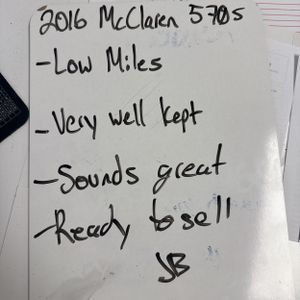 2016 McClaren 570s
-Low Miles
-Very well kept
-Sounds great
-Ready to sell
JB